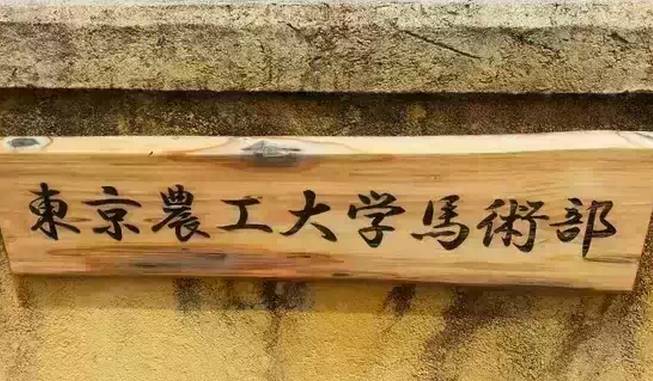 東京農工大学馬術部